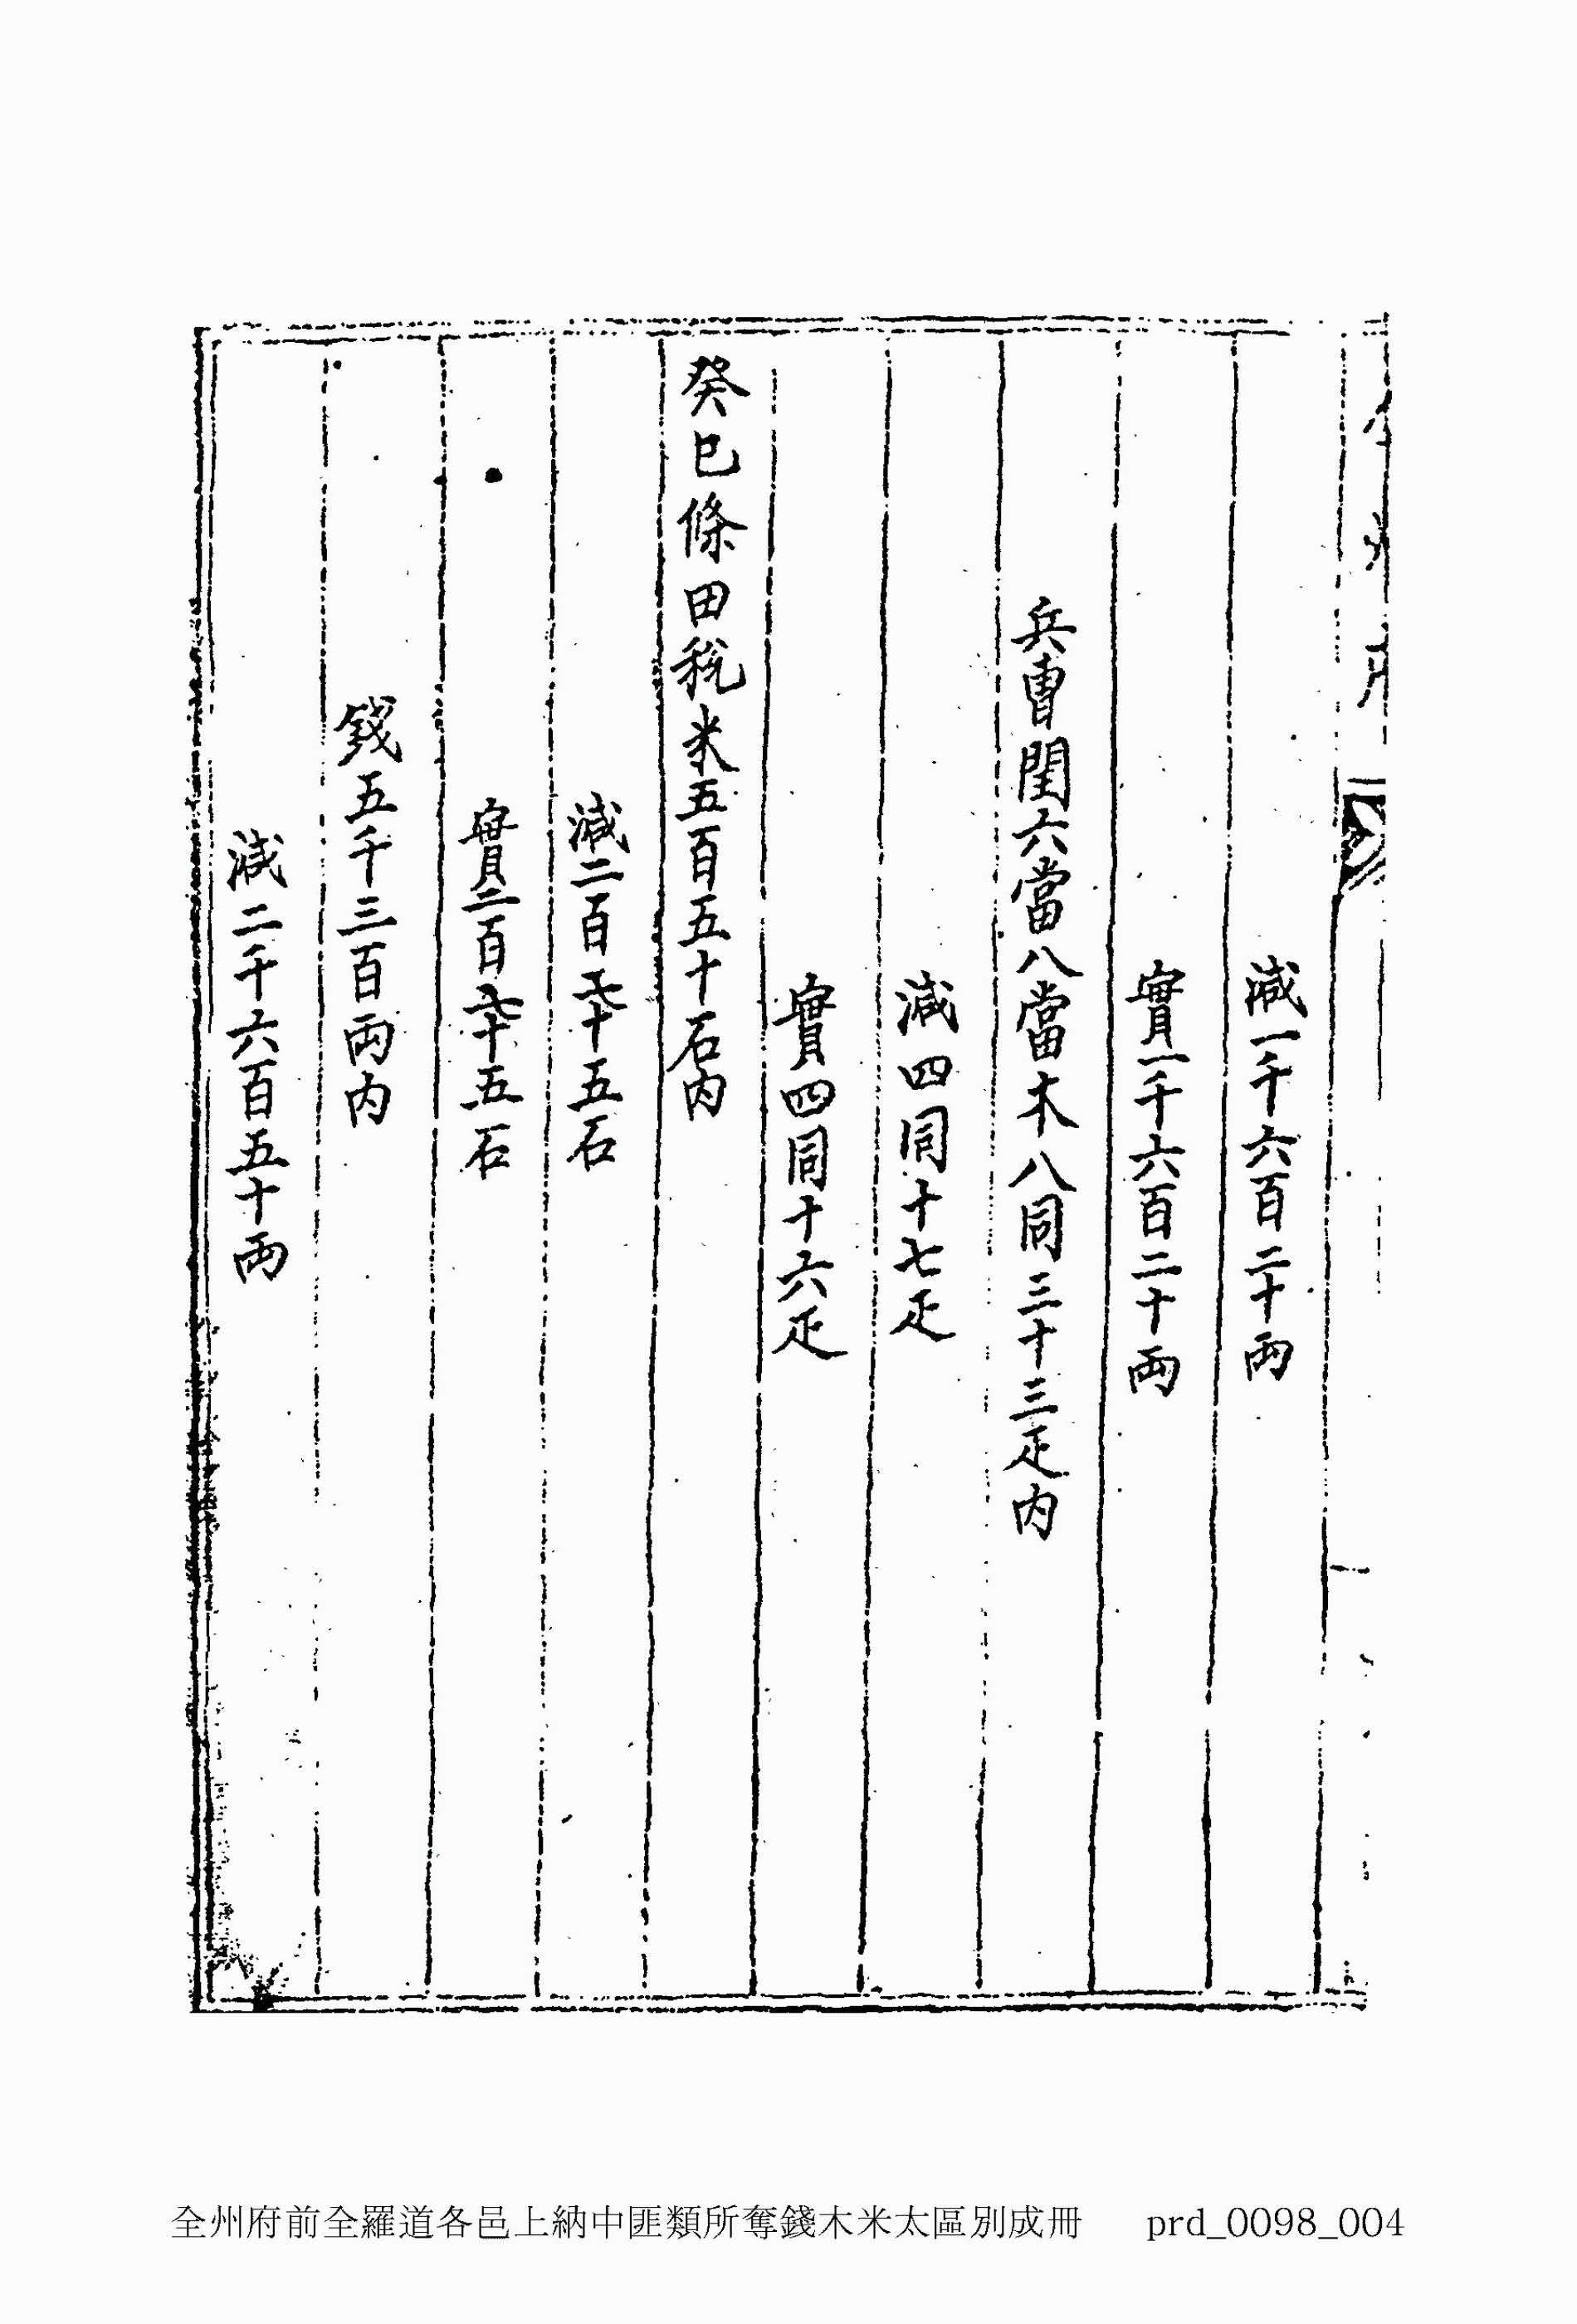 減一千六百二十兩
實一千六百二十兩
兵曹閏六當八當木八同三十三疋內
減四同十七疋
實四同十六疋
癸巳條田稅米五百五十石內
減二百七十五石
實二百七十五石
錢五千三百兩內
減二千六百五十兩
全州府前全羅道各邑上納中匪類所奪錢木米太區別成冊 prd_0098_004